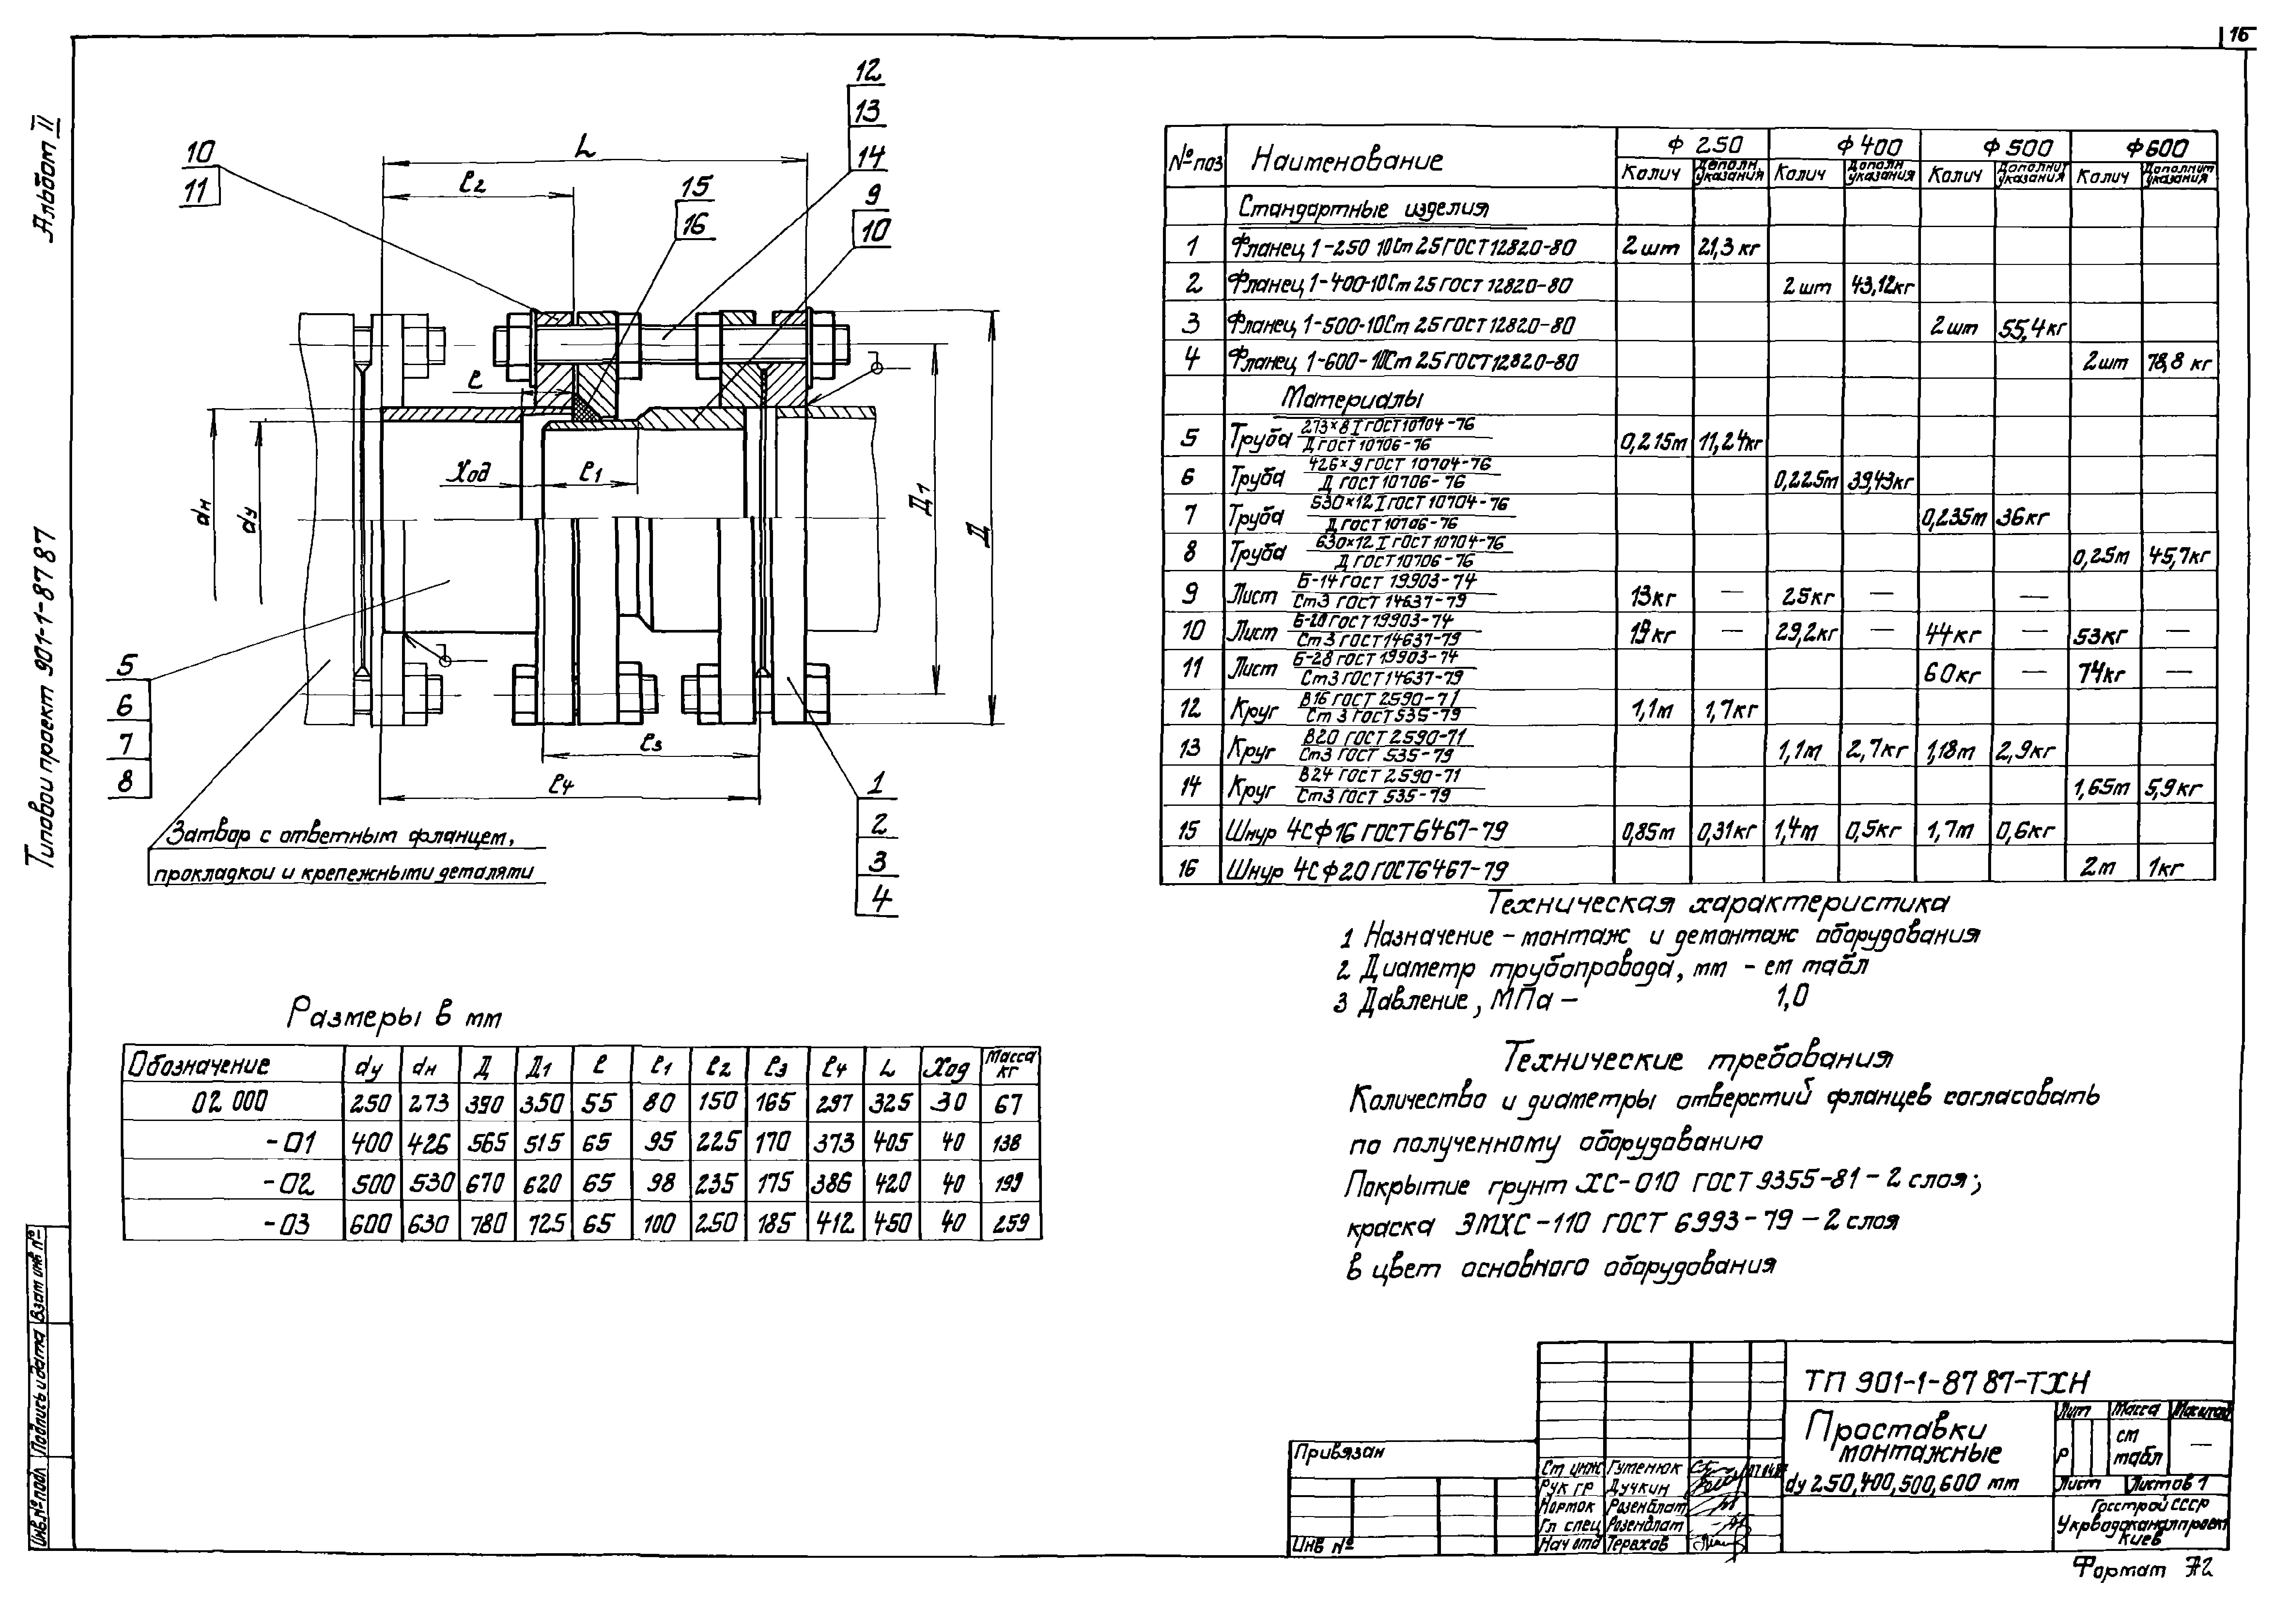 16
Альбом II
Типовой проект 901-1-87 87
Инв.№ подл Подпись и дата Взам инв №
12
13
14
10
11
15
16
9
10
L
l2
l
Ход
l1
dн
dу
Д1
Д
l3
l4
5
6
7
8
1
2
3
4
Затвор с ответным фланцем,
прокладкой и крепежными деталями
№ поз Наименование Ф 250 Ф 400 Ф 500 Ф 600
Колич Дополн. указания Колич Дополн указания Колич Дополнит указания Колич Дополнит указания
Стандартные изделия
1 Фланец 1-250 10Ст 25 ГОСТ 12820-80 2 шт 21,3 кг
2 Фланец 1-400-10Ст 25 ГОСТ 12820-80 2 шт 43,12кг
3 Фланец 1-500-10Ст 25 ГОСТ 12820-80 2 шт 55,4кг
4 Фланец 1-600-10Ст 25 ГОСТ 12820-80 2шт 78,8 кг
Материалы
5 Труба 273×8 I ГОСТ 10704-76 / Д ГОСТ 10706-76 0,215м 11,24кг
6 Труба 426×9 ГОСТ 10704-76 / Д ГОСТ 10706-76 0,225м 39,43кг
7 Труба 530×12 I ГОСТ 10704-76 / Д ГОСТ 10706-76 0,235м 36кг
8 Труба 630×12 I ГОСТ 10704-76 / Д ГОСТ 10706-76 0,25м 45,7кг
9 Лист Б-14 ГОСТ 19903-74 / Ст3 ГОСТ 14637-79 13кг — 25кг — —
10 Лист Б-20 ГОСТ 19903-74 / Ст3 ГОСТ 14637-79 19кг — 29,2кг — 44кг — 53кг —
11 Лист Б-28 ГОСТ 19903-74 / Ст3 ГОСТ 14637-79 60кг — 74кг —
12 Круг В16 ГОСТ 2590-71 / Ст 3 ГОСТ 535-79 1,1м 1,7кг
13 Круг В20 ГОСТ 2590-71 / Ст3 ГОСТ 535-79 1,1м 2,7кг 1,18м 2,9кг
14 Круг В24 ГОСТ 2590-71 / Ст3 ГОСТ 535-79 1,65м 5,9кг
15 Шнур 4С ф 16 ГОСТ 6467-79 0,85м 0,31кг 1,4м 0,5кг 1,7м 0,6кг
16 Шнур 4С ф 20 ГОСТ 6467-79 2м 1кг
Техническая характеристика
1 Назначение - монтаж и демонтаж оборудования
2 Диаметр трубопровода, мм - см табл
3 Давление, МПа - 1,0
Технические требования
Количество и диаметры отверстий фланцев согласовать
по полученному оборудованию
Покрытие грунт ХС-010 ГОСТ 9355-81 - 2 слоя;
краска ЭМХС-110 ГОСТ 6993-79 - 2 слоя
в цвет основного оборудования
Размеры в мм
Обозначение dу dн Д Д1 l l1 l2 l3 l4 L Ход Масса кг
02 000 250 273 390 350 55 80 150 165 297 325 30 67
-01 400 426 565 515 65 95 225 170 373 405 40 138
-02 500 530 670 620 65 98 235 175 386 420 40 199
-03 600 630 780 725 65 100 250 185 412 450 40 259
Привязан
Инв №
Ст инж Гутенюк
Рук гр Дучкин
Норток Розенблат
Гл спец Розенблат
Нач отд Терехов
ТП 901-1-87 87-ТХН
Проставки
монтажные
dу 250,400,500,600 мм
Лит Масса Масштаб
Р см табл —
Лист Листов 1
Госстрой СССР
Укрводоканалпроект
Киев
Формат А2